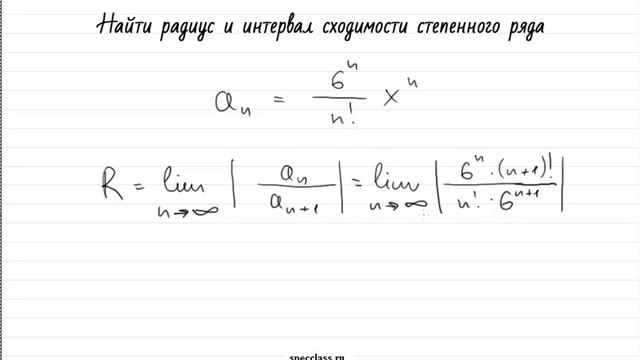 Найти радиус и интервал сходимости степенного ряда
a_n = 6^n / n! x^n
R = lim_{n→∞} | a_n / a_{n+1} | = lim_{n→∞} | 6^n · (n+1)! / n! · 6^{n+1} |
specclass.ru